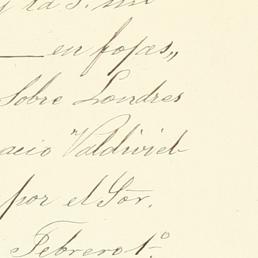 y la S. mi
en fojas,,
Sobre Londres
acio "Valdivieb
por el Sor.
Febrero 1º